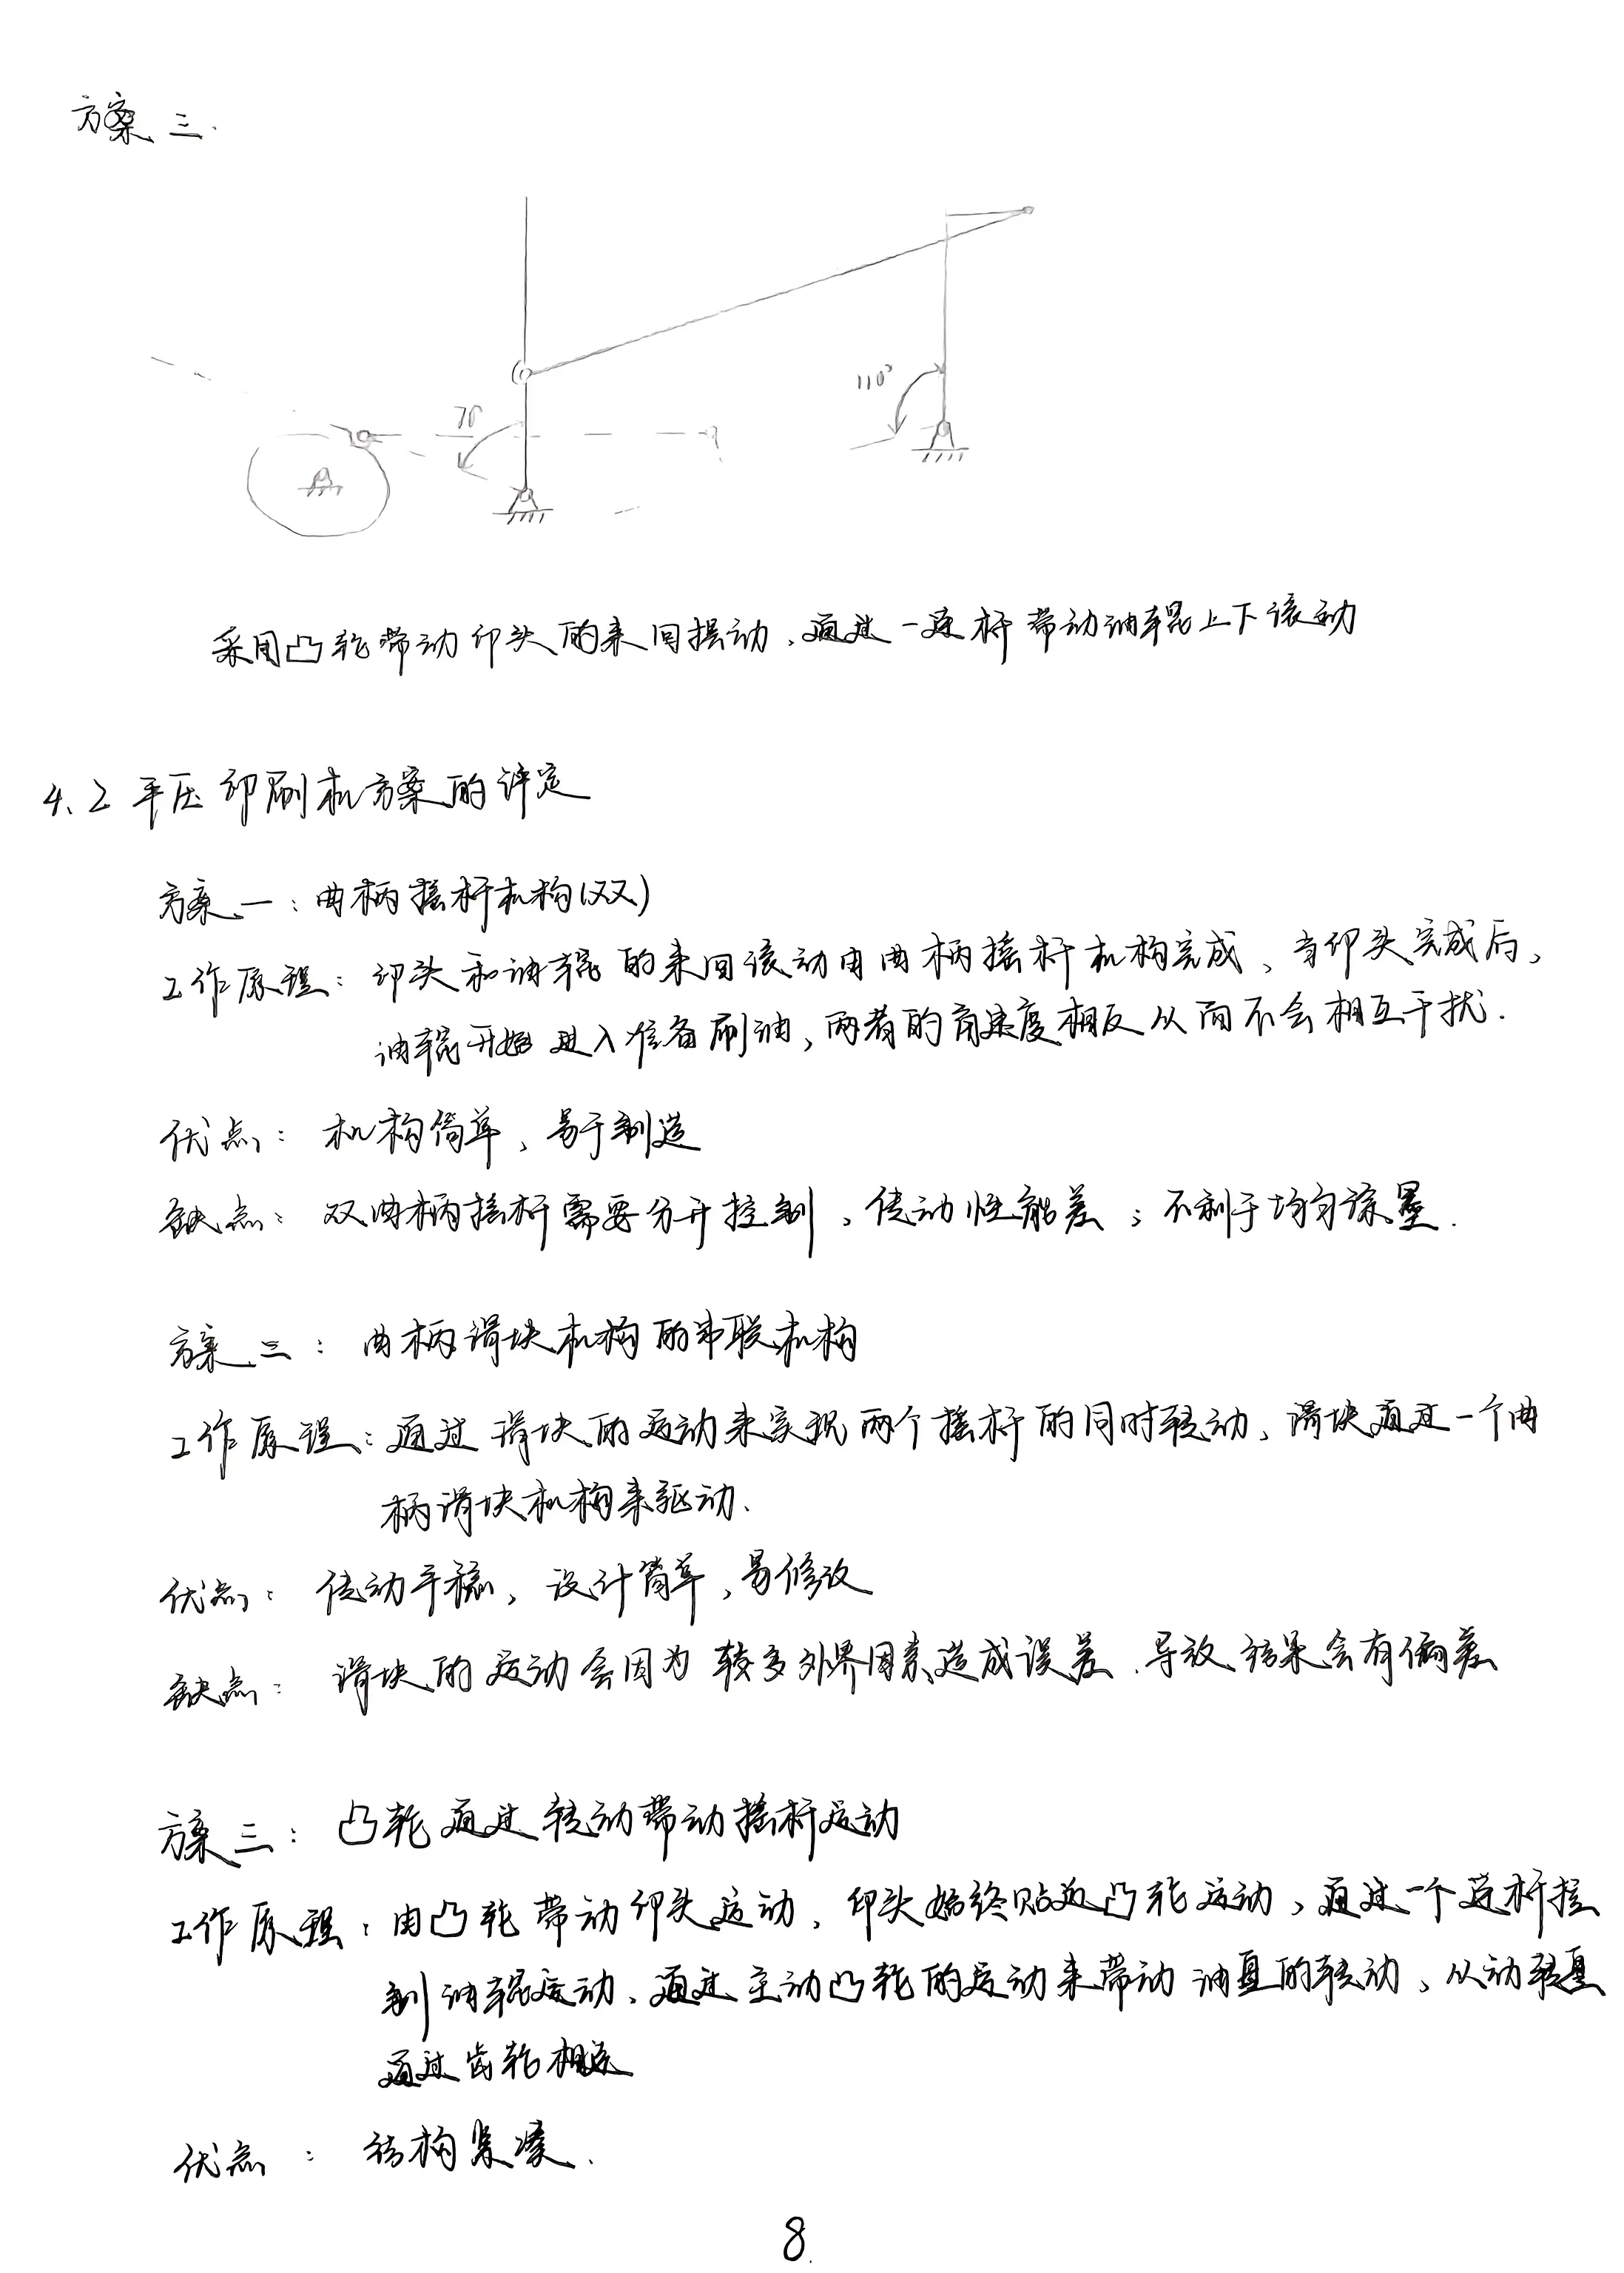 方案三.
110°
70°
采用凸轮带动印头的来回摆动，通过一连杆带动油辊上下滚动
4.2 平压印刷机方案的评定
方案一：曲柄摇杆机构(双)
工作原理：印头和油辊的来回滚动由曲柄摇杆机构完成、当印头完成后，
油辊开始进入准备刷油，两者的角速度相反从而不会相互干扰.
优点：机构简单，易于制造
缺点：双曲柄摇杆需要分开控制，传动性能差；不利于均匀涂墨.
方案二：曲柄滑块机构的串联机构
工作原理：通过滑块的运动来实现两个摇杆的同时转动，滑块通过一个曲
柄滑块机构来驱动.
优点：传动平稳，设计简单，易修改
缺点：滑块的运动会因为较多外界因素造成误差.导致结果会有偏差
方案三：凸轮通过转动带动摇杆运动
工作原理：由凸轮带动印头运动，印头始终贴近凸轮运动，通过一个连杆控
制油辊运动、通过主动凸轮的运动来带动油的转动，从动
通过齿轮相连
优点：结构紧凑.
8.